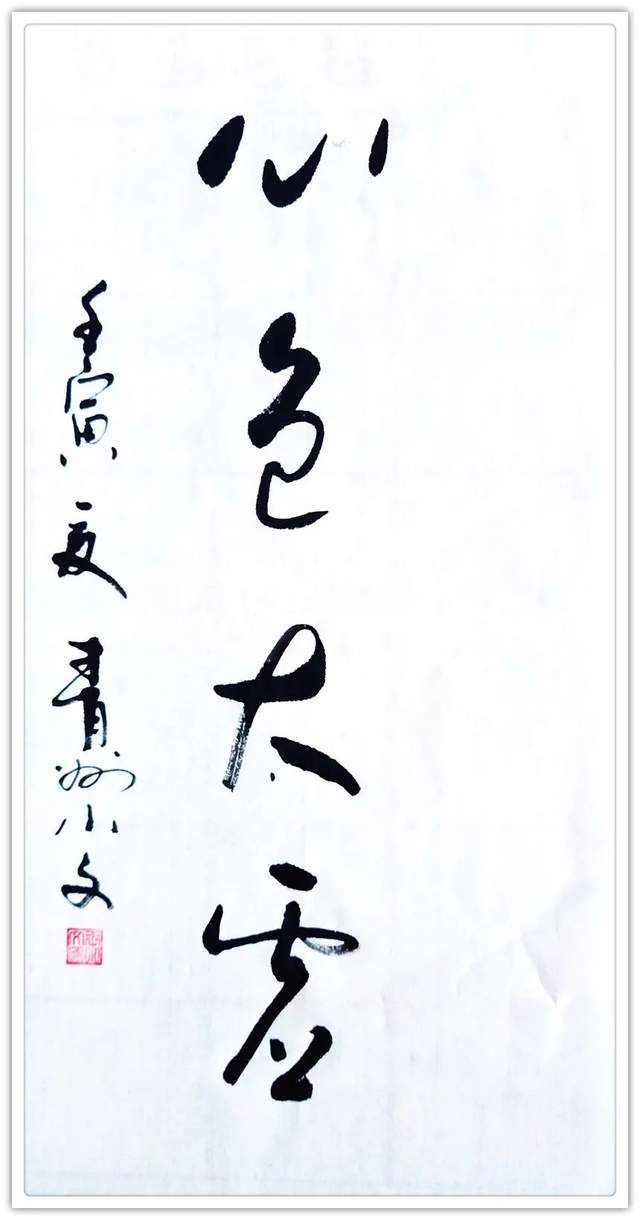 心包太虚
壬寅夏青州小文